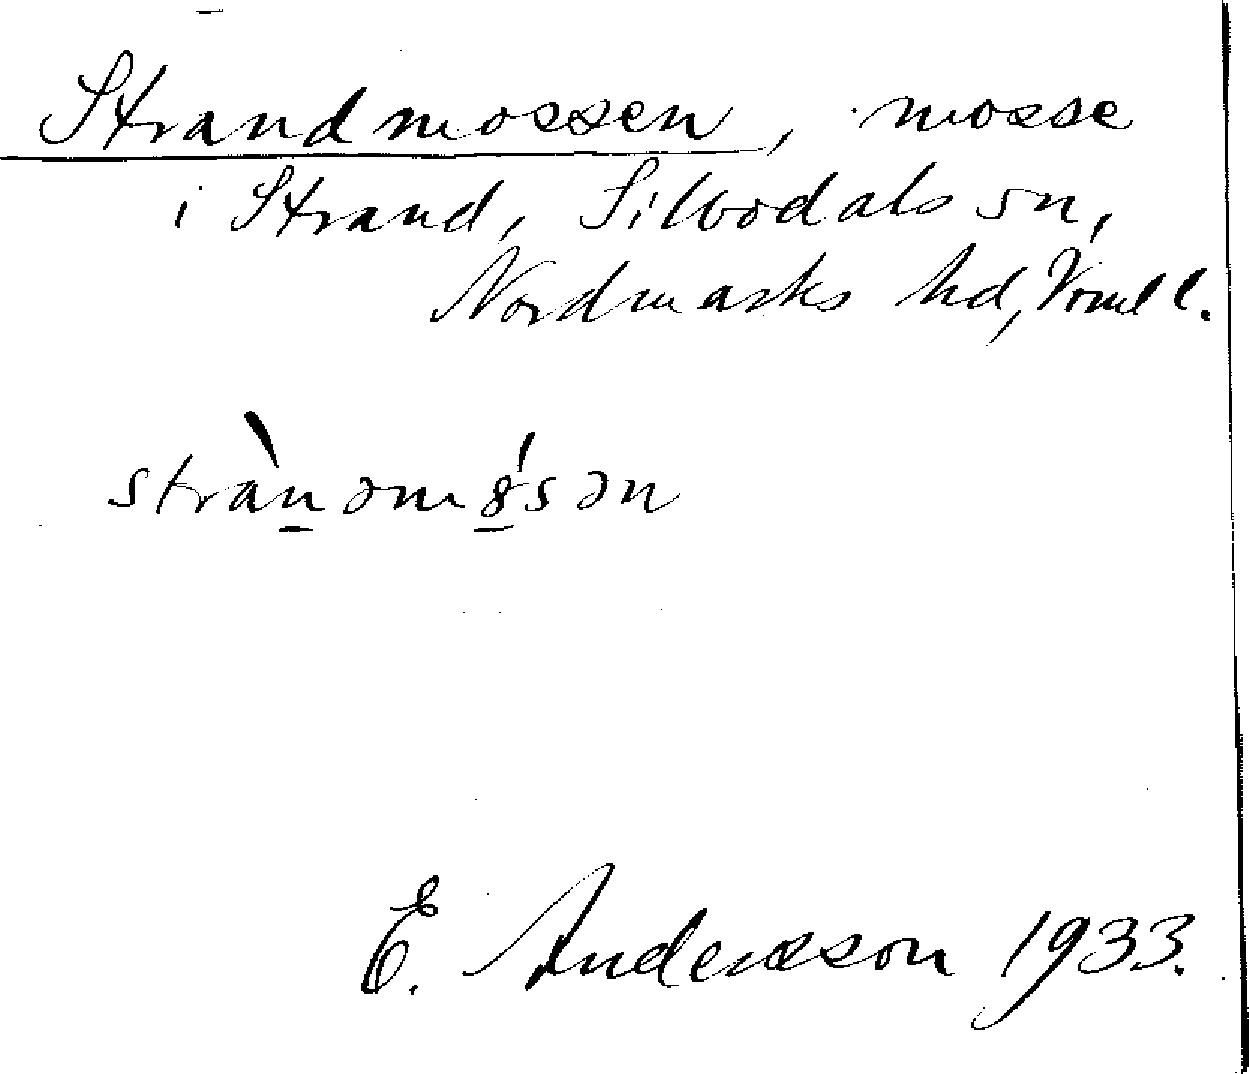 Strandmossen, mosse
i Strand, Silbodals sn,
Nordmarks hd, Vrml l.
strànəmȣ́sən
E. Andersson 1933.